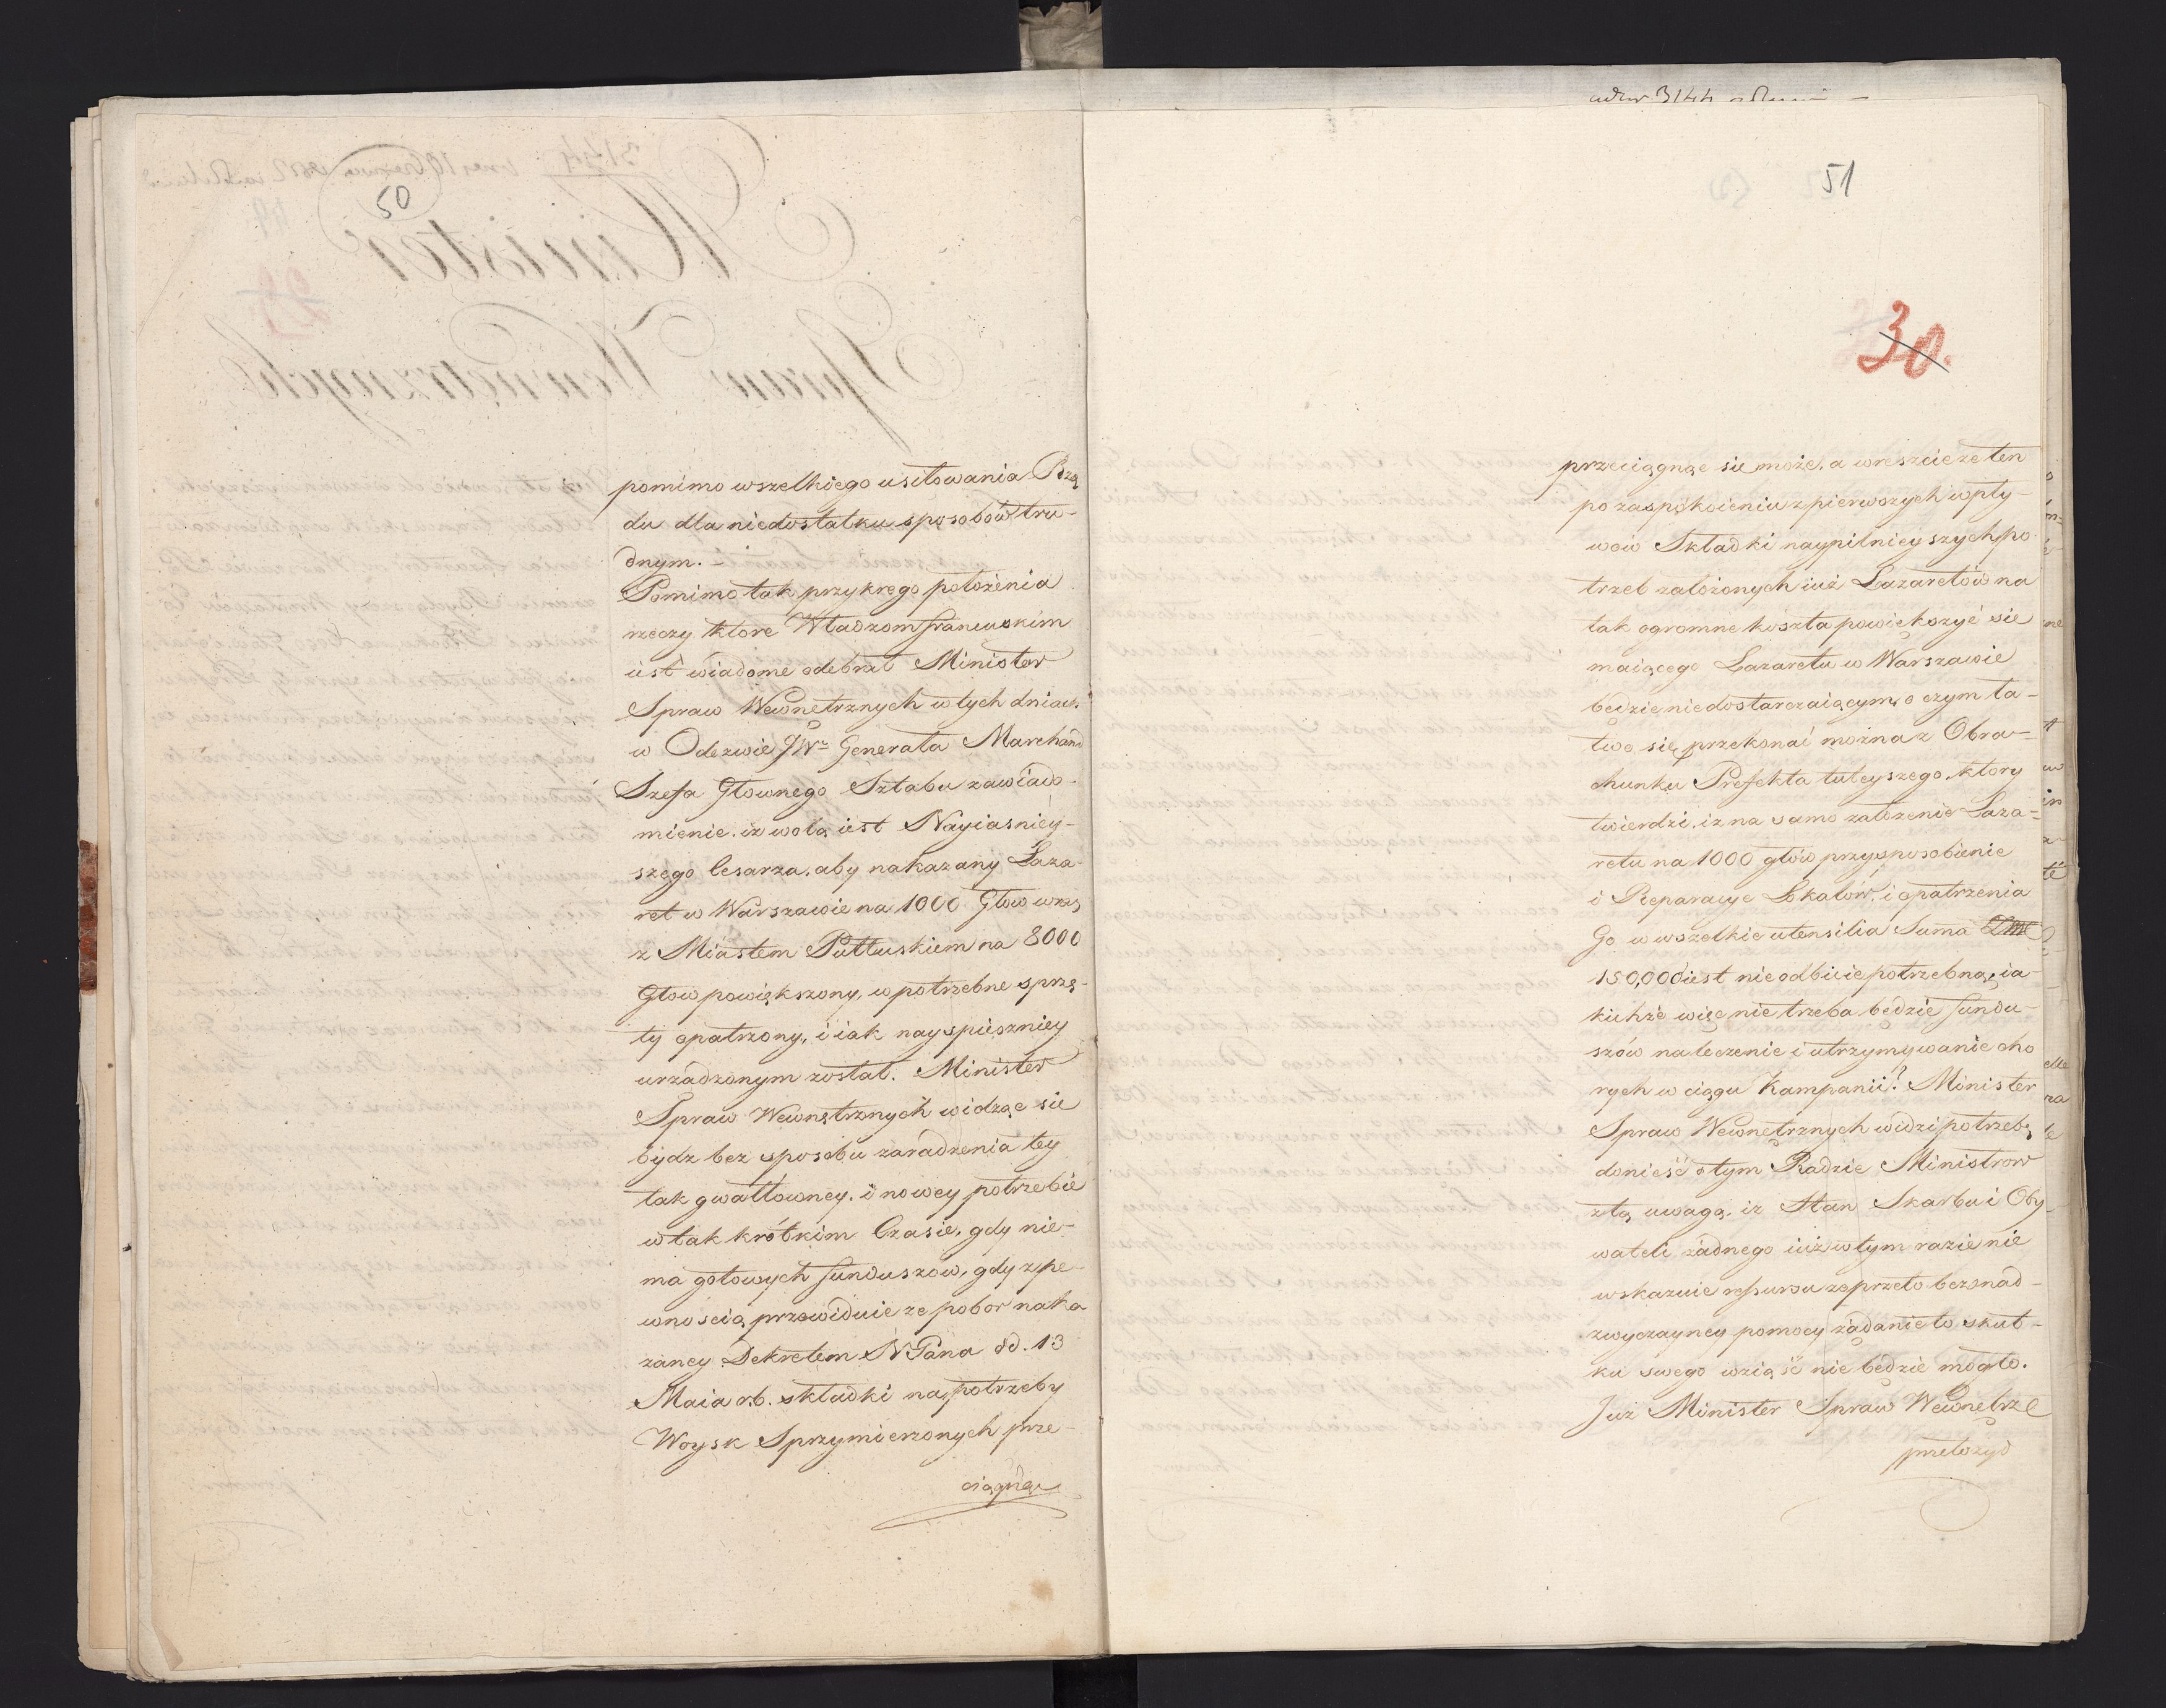 50
pomimo wszelkiego usiłowania Rzą
du dla niedostatku sposobów tru-
dnym. -
Pomimo tak przykrego położenia
rzeczy które Władzom francuskim
iest wiadome odebrał Minister
Spraw Wewnętrznych w tych dniach
w Odezwie JWo Generała Marchand
Szefa Głownego Sztabu zawiado-
mienie. iż wolą iest Nayiasniey-
szego Cesarza. aby nakazany Laza-
ret w Warszawie na 1000 Głow wraz
z Miastem Pułtuskiem na 8000
Głow powiększony, w potrzebne sprzę-
ty opatrzony, i iak nayspieszniey
urządzonym został. Minister
Spraw Wewnętrznych widząc sie
bydz bez sposobu zaradzenia tey
tak gwałtowney. i nowey potrzebie
w tak krótkim Czasie, gdy nie-
ma gotowych funduszow, gdy z pe-
wnością przewiduie ze pobor naka
zaney Dekretem N Pana dd. 13
Maia r.b. składki na potrzeby
Woysk Sprzymierzonych prze-
ciągnąc
51
30.
przeciągnąc sie może, a wreszcie ze ten
po zaspokoieniu z pierwszych wpły-
wów Składki naypilnieyszych po-
trzeb założonych iuż Lazaretów na
tak ogromne koszta powiększyć sie
maiącego Lazaretu w Warszawie
będzie niedostarczaiącym, o czym ła-
two się przekonać można z Obra-
chunku Prefekta tuteyszego. ktory
twierdzi. iz na samo założenie Laza-
retu na 1000 głów przysposobienie
i Reparacye Lokalów, i opatrzenia
Go w wszelkie utensilia Suma
150,000 iest nieodbicie potrzebną, ia-
kichże więc nie trzeba będzie fundu-
szów na leczenie i utrzymywanie cho
rych w ciągu Kampanii? Minister
Spraw Wewnętrznych widzi potrzebę
donieść o tym Radzie Ministrow
z tą uwagą, iz Stan Skarbu i Oby-
wateli żadnego iuż w tym razie nie
wskazuie ressursu zaprzeto bez nad-
zwyczayney pomocy żądanie to skut-
ku swego wziąść nie będzie mogło.
Juz Minister Spraw Wewnętrz
przełożył